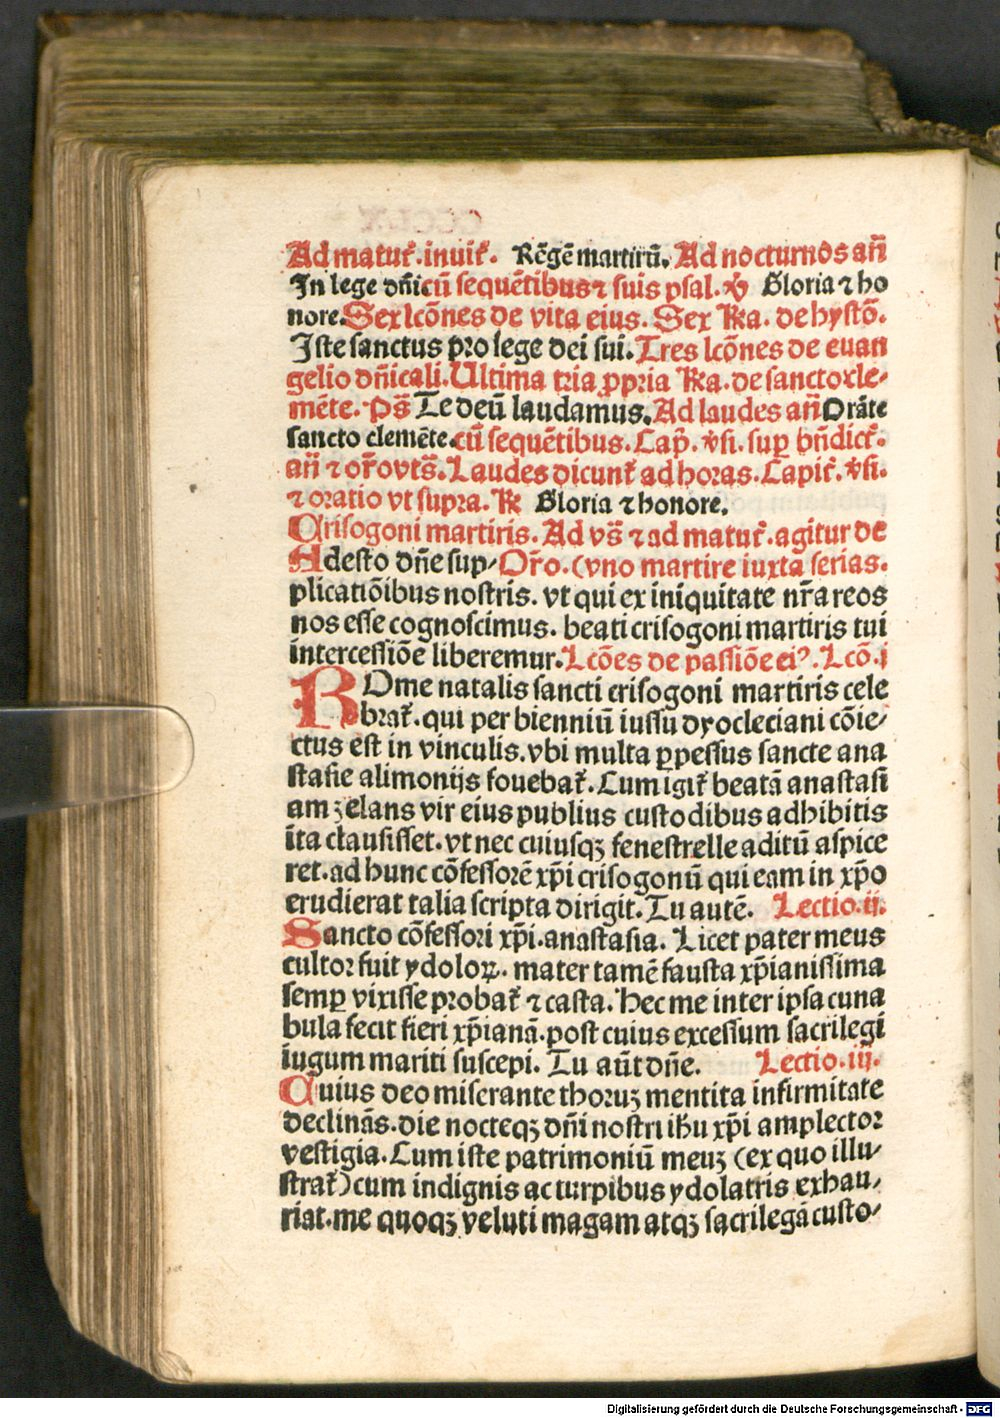 Ad matut᷑. inuit᷑. Rēgē martirū. Ad nocturnos añ
In lege dñi cū sequētibus ⁊ suis psal. ℣ Gloria ⁊ ho
nore. Sex lcōnes de vita eius. Sex ℟a. de hystō.
Iste sanctus pro lege dei sui. Tres lcōnes de euan
gelio dñicali. Ultima tria ꝓpria ℟a. de sancto cle-
mēte. Ps̄ Te deū laudamus. Ad laudes añ Orāte
sancto clemēte. cū sequētibus. Cap̄. v̄si. suꝑ bñdict᷑.
añ ⁊ or̄o vt s̄. Laudes dicunt᷑ ad horas. Capit᷑. v̄si.
⁊ oratio vt supra. ℟ Gloria ⁊ honore.
Crisogoni martiris. Ad vs̄ ⁊ ad matut᷑. agitur de
Adesto dñe sup- Or̄o. (vno martire iuxta ferias.
plicatiōibus nostris. vt qui ex iniquitate nr̄a reos
nos esse cognoscimus. beati crisogoni martiris tui
intercessiōe liberemur. Lcōes de passiōe eiꝰ. Lcō. j
ROme natalis sancti crisogoni martiris cele
brat᷑. qui per bienniū iussu dyocleciani cōie-
ctus est in vinculis. vbi multa ꝑpessus sancte ana
stasie alimonijs fouebat᷑. Cum igit᷑ beatā anastasi
am zelans vir eius publius custodibus adhibitis
ita clausisset. vt nec cuiusqꝫ fenestrelle aditū aspice
ret. ad hunc cōfessorē xp̄i crisogonū qui eam in xp̄o
erudierat talia scripta dirigit. Tu autē. Lectio. ij.
Sancto cōfessori xp̄i. anastasia. Licet pater meus
cultor fuit ydoloꝝ. mater tamē fausta xp̄ianissima
semꝑ vixisse probat᷑ ⁊ casta. Hec me inter ipsa cuna
bula fecit fieri xp̄ianā. post cuius excessum sacrilegi
iugum mariti suscepi. Tu aūt dñe. Lectio. iij.
Cuius deo miserante thoruꝫ mentita infirmitate
declinās. die nocteqꝫ dñi nostri ih̄u xp̄i amplector
vestigia. Cum iste patrimoniū meuꝫ (ex quo illu-
strat᷑) cum indignis ac turpibus ydolatris exhau-
riat. me quoqꝫ veluti magam atqꝫ sacrilegā custo-
Digitalisierung gefördert durch die Deutsche Forschungsgemeinschaft - DFG